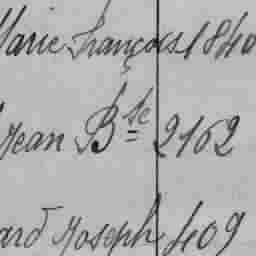 Marie François 1840
Jean Bte 2162
ard Joseph 409